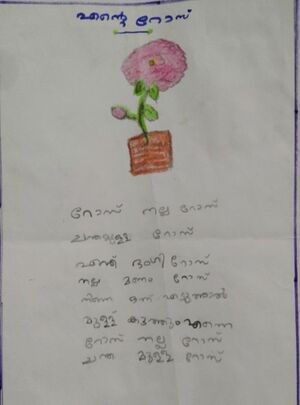 എന്റെ റോസ്
റോസ് നല്ല റോസ്
ചന്തമുള്ള റോസ്
എന്ത് ഭംഗി റോസ്
നല്ല മണം റോസ്
നിന്നെ ഒന്ന് എടുത്താൽ
മുള്ള് കുത്തും എന്നെ
റോസ് നല്ല റോസ്
ചന്ത മുള്ള റോസ്